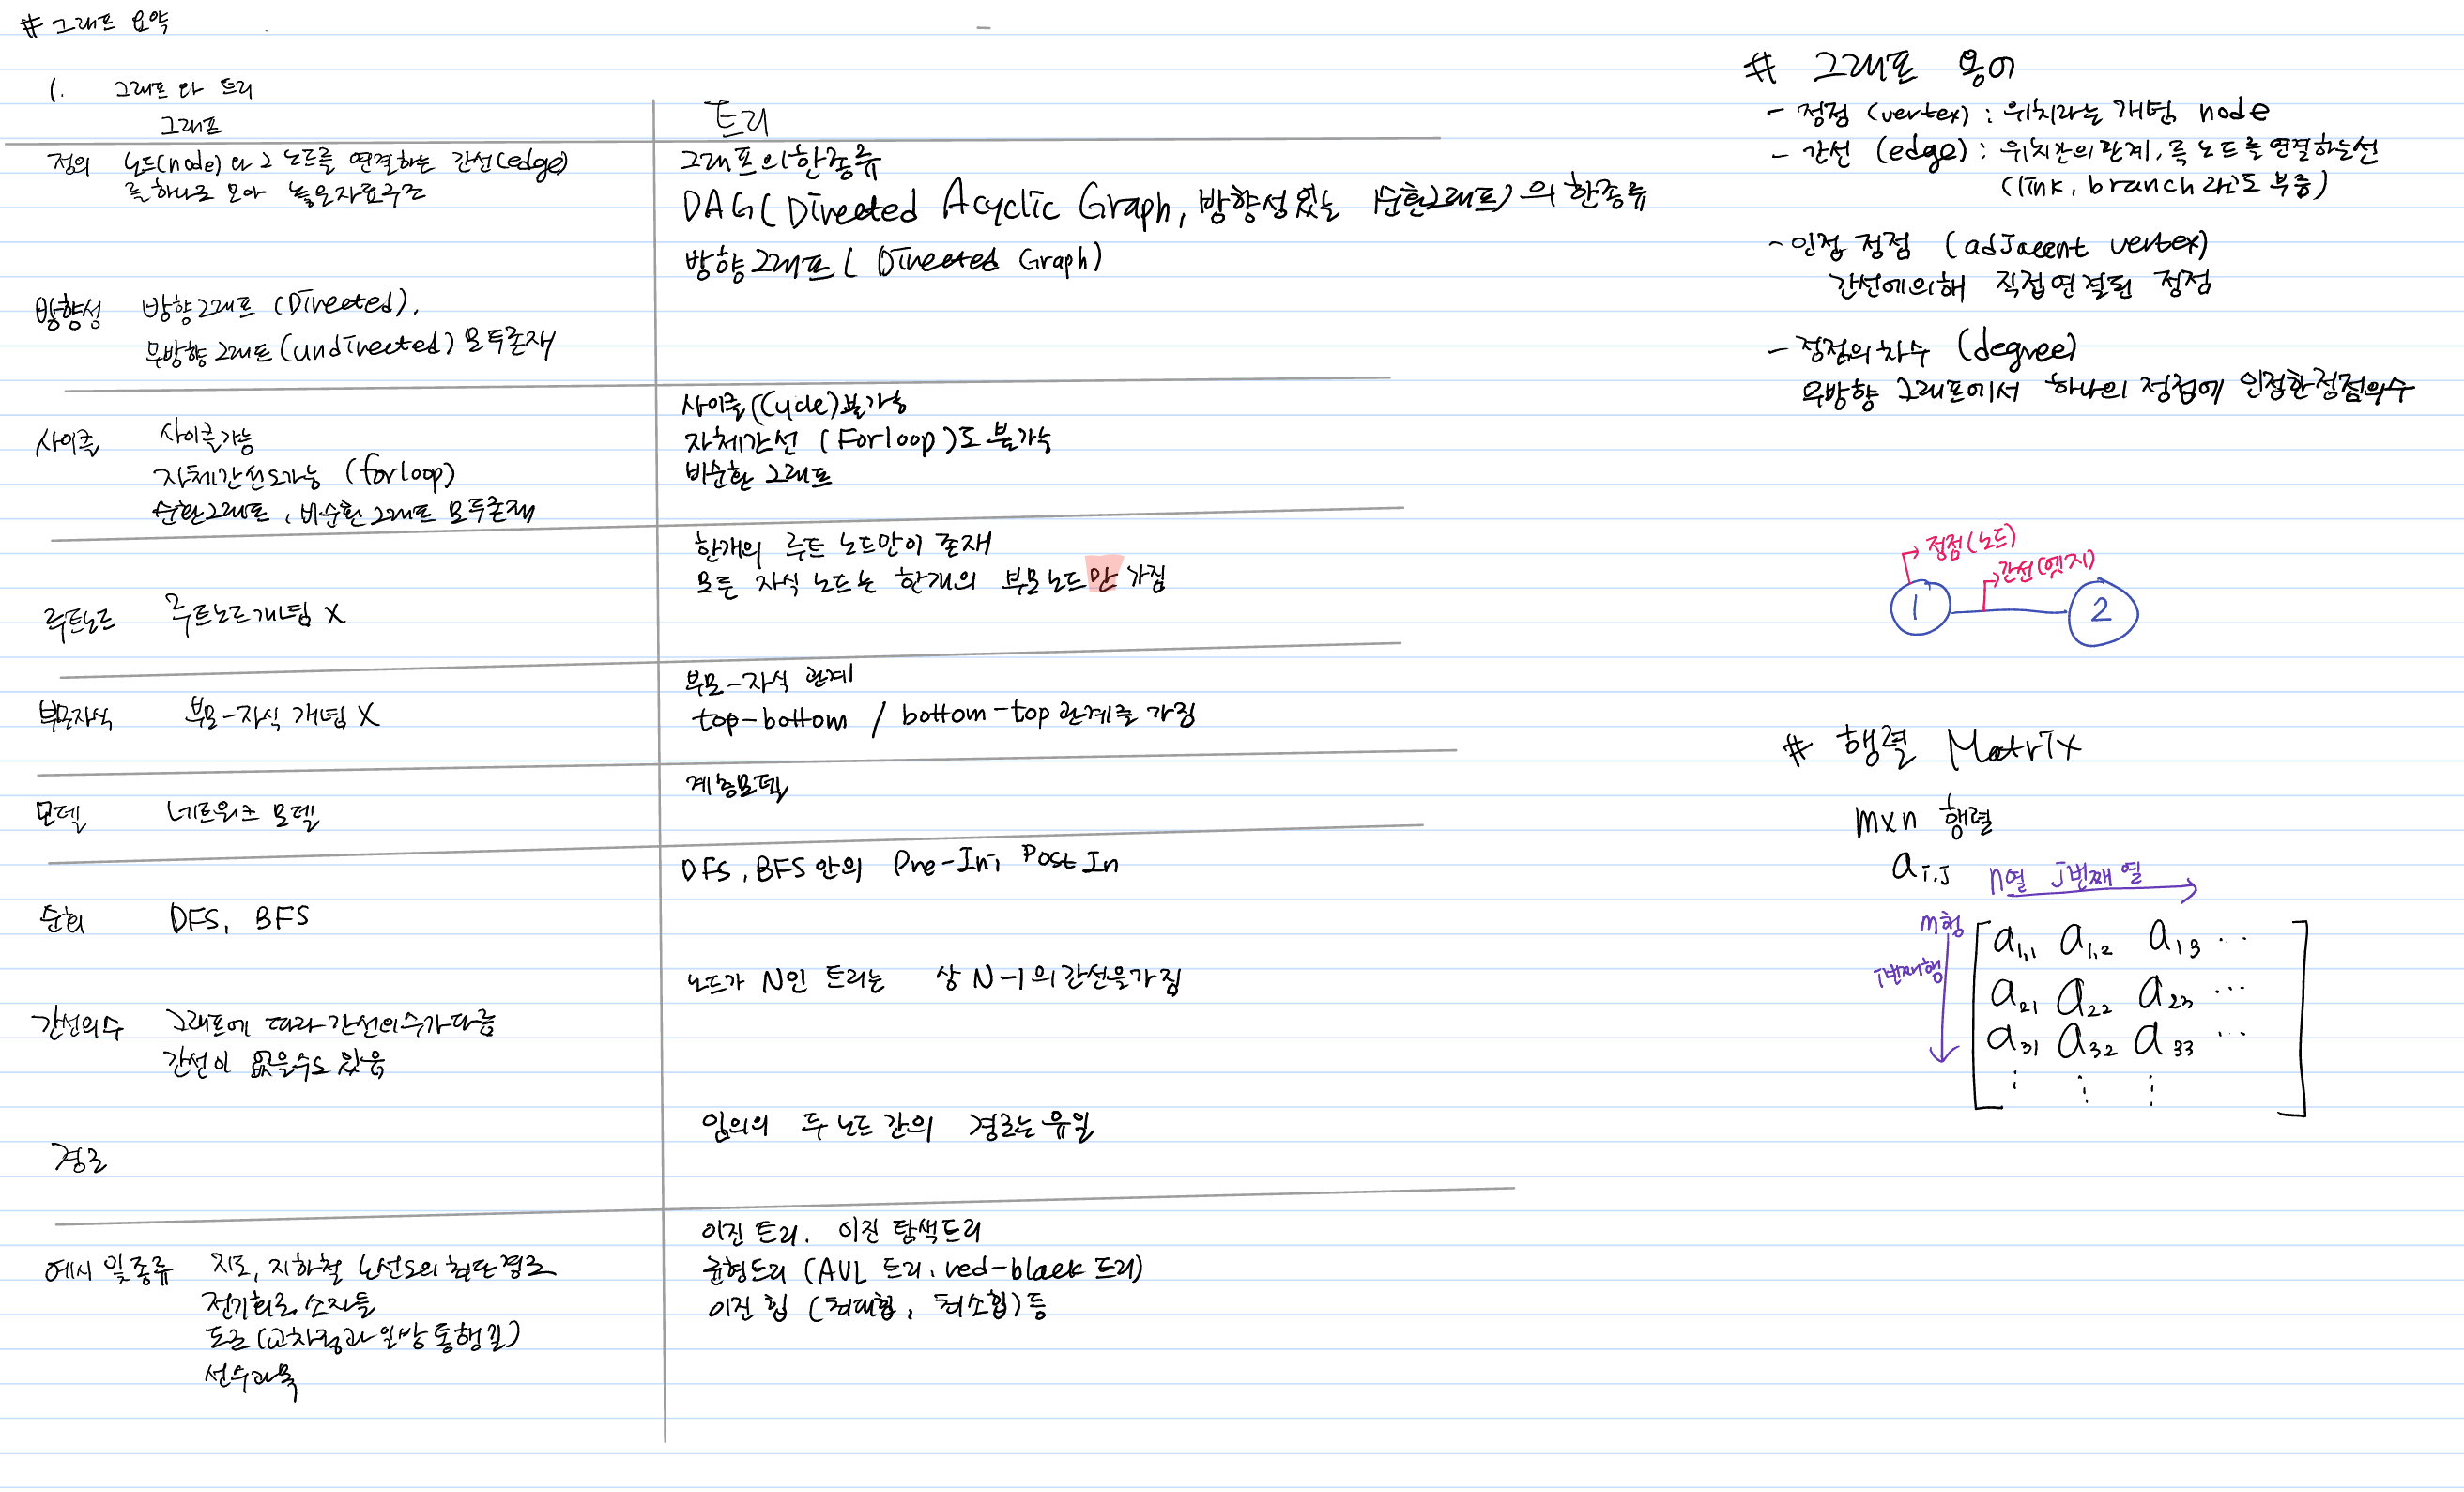 # 그래프 요약
1. 그래프와 트리
그래프
트리
정의 노드(node)와 그 노드를 연결하는 간선(edge)
를 하나로 모아 놓은 자료구조
그래프의 한종류
DAG(Directed Acyclic Graph, 방향성있는 순환그래프)의 한종류
방향그래프 (Directed Graph)
방향성 방향그래프 (Directed),
무방향그래프 (undirected) 모두존재
사이클 사이클가능
자체간선도가능 (forloop)
순환그래프, 비순환 그래프 모두존재
사이클(Cycle)불가능
자체간선 (Forloop)도 불가능
비순환 그래프
루트노드 루트노드개념 X
한개의 루트 노드만이 존재
모든 자식 노드는 한개의 부모노드만 가짐
부모자식 부모-자식 개념 X
부모-자식 관계
top-bottom / bottom-top 관계를 가짐
모델 네트워크 모델
계층모델
순회 DFS, BFS
DFS, BFS 안의 Pre-In, Post In
간선의수 그래프에 따라 간선의수가다름
간선이 없을수도 있음
노드가 N인 트리는 상 N-1의 간선을가짐
경로
임의의 두 노드 간의 경로는 유일
예시 및 종류 지도, 지하철 노선도의 최단경로
전기회로 소자들
도로 (교차점과 일방통행길)
선수과목
이진 트리. 이진 탐색트리
균형트리 (AVL 트리, red-black 트리)
이진 힙 (최대힙, 최소힙) 등
# 그래프 용어
- 정점 (vertex) : 위치라는 개념, node
- 간선 (edge) : 위치간의 관계, 즉 노드를 연결하는선
(link, branch 라고도 부름)
- 인접 정점 (adjacent vertex)
간선에의해 직접연결된 정점
- 정점의차수 (degree)
무방향 그래프에서 하나의 정점에 인접한정점의수
정점(노드)
간선(엣지)
1 2
# 행렬 Matrix
mxn 행렬
ai,j
n열 j번째 열
m행
i번째행
a1,1 a1,2 a13 ...
a21 a22 a23 ...
a31 a32 a33 ...
⋮ ⋮ ⋮